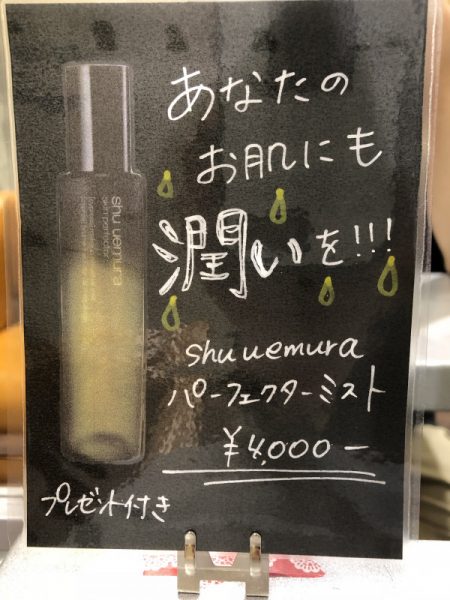 あなたの
お肌にも
潤いを!!!
shu uemura
パーフェクターミスト
¥4,000-
プレゼント付き
shu uemura
skin perfector